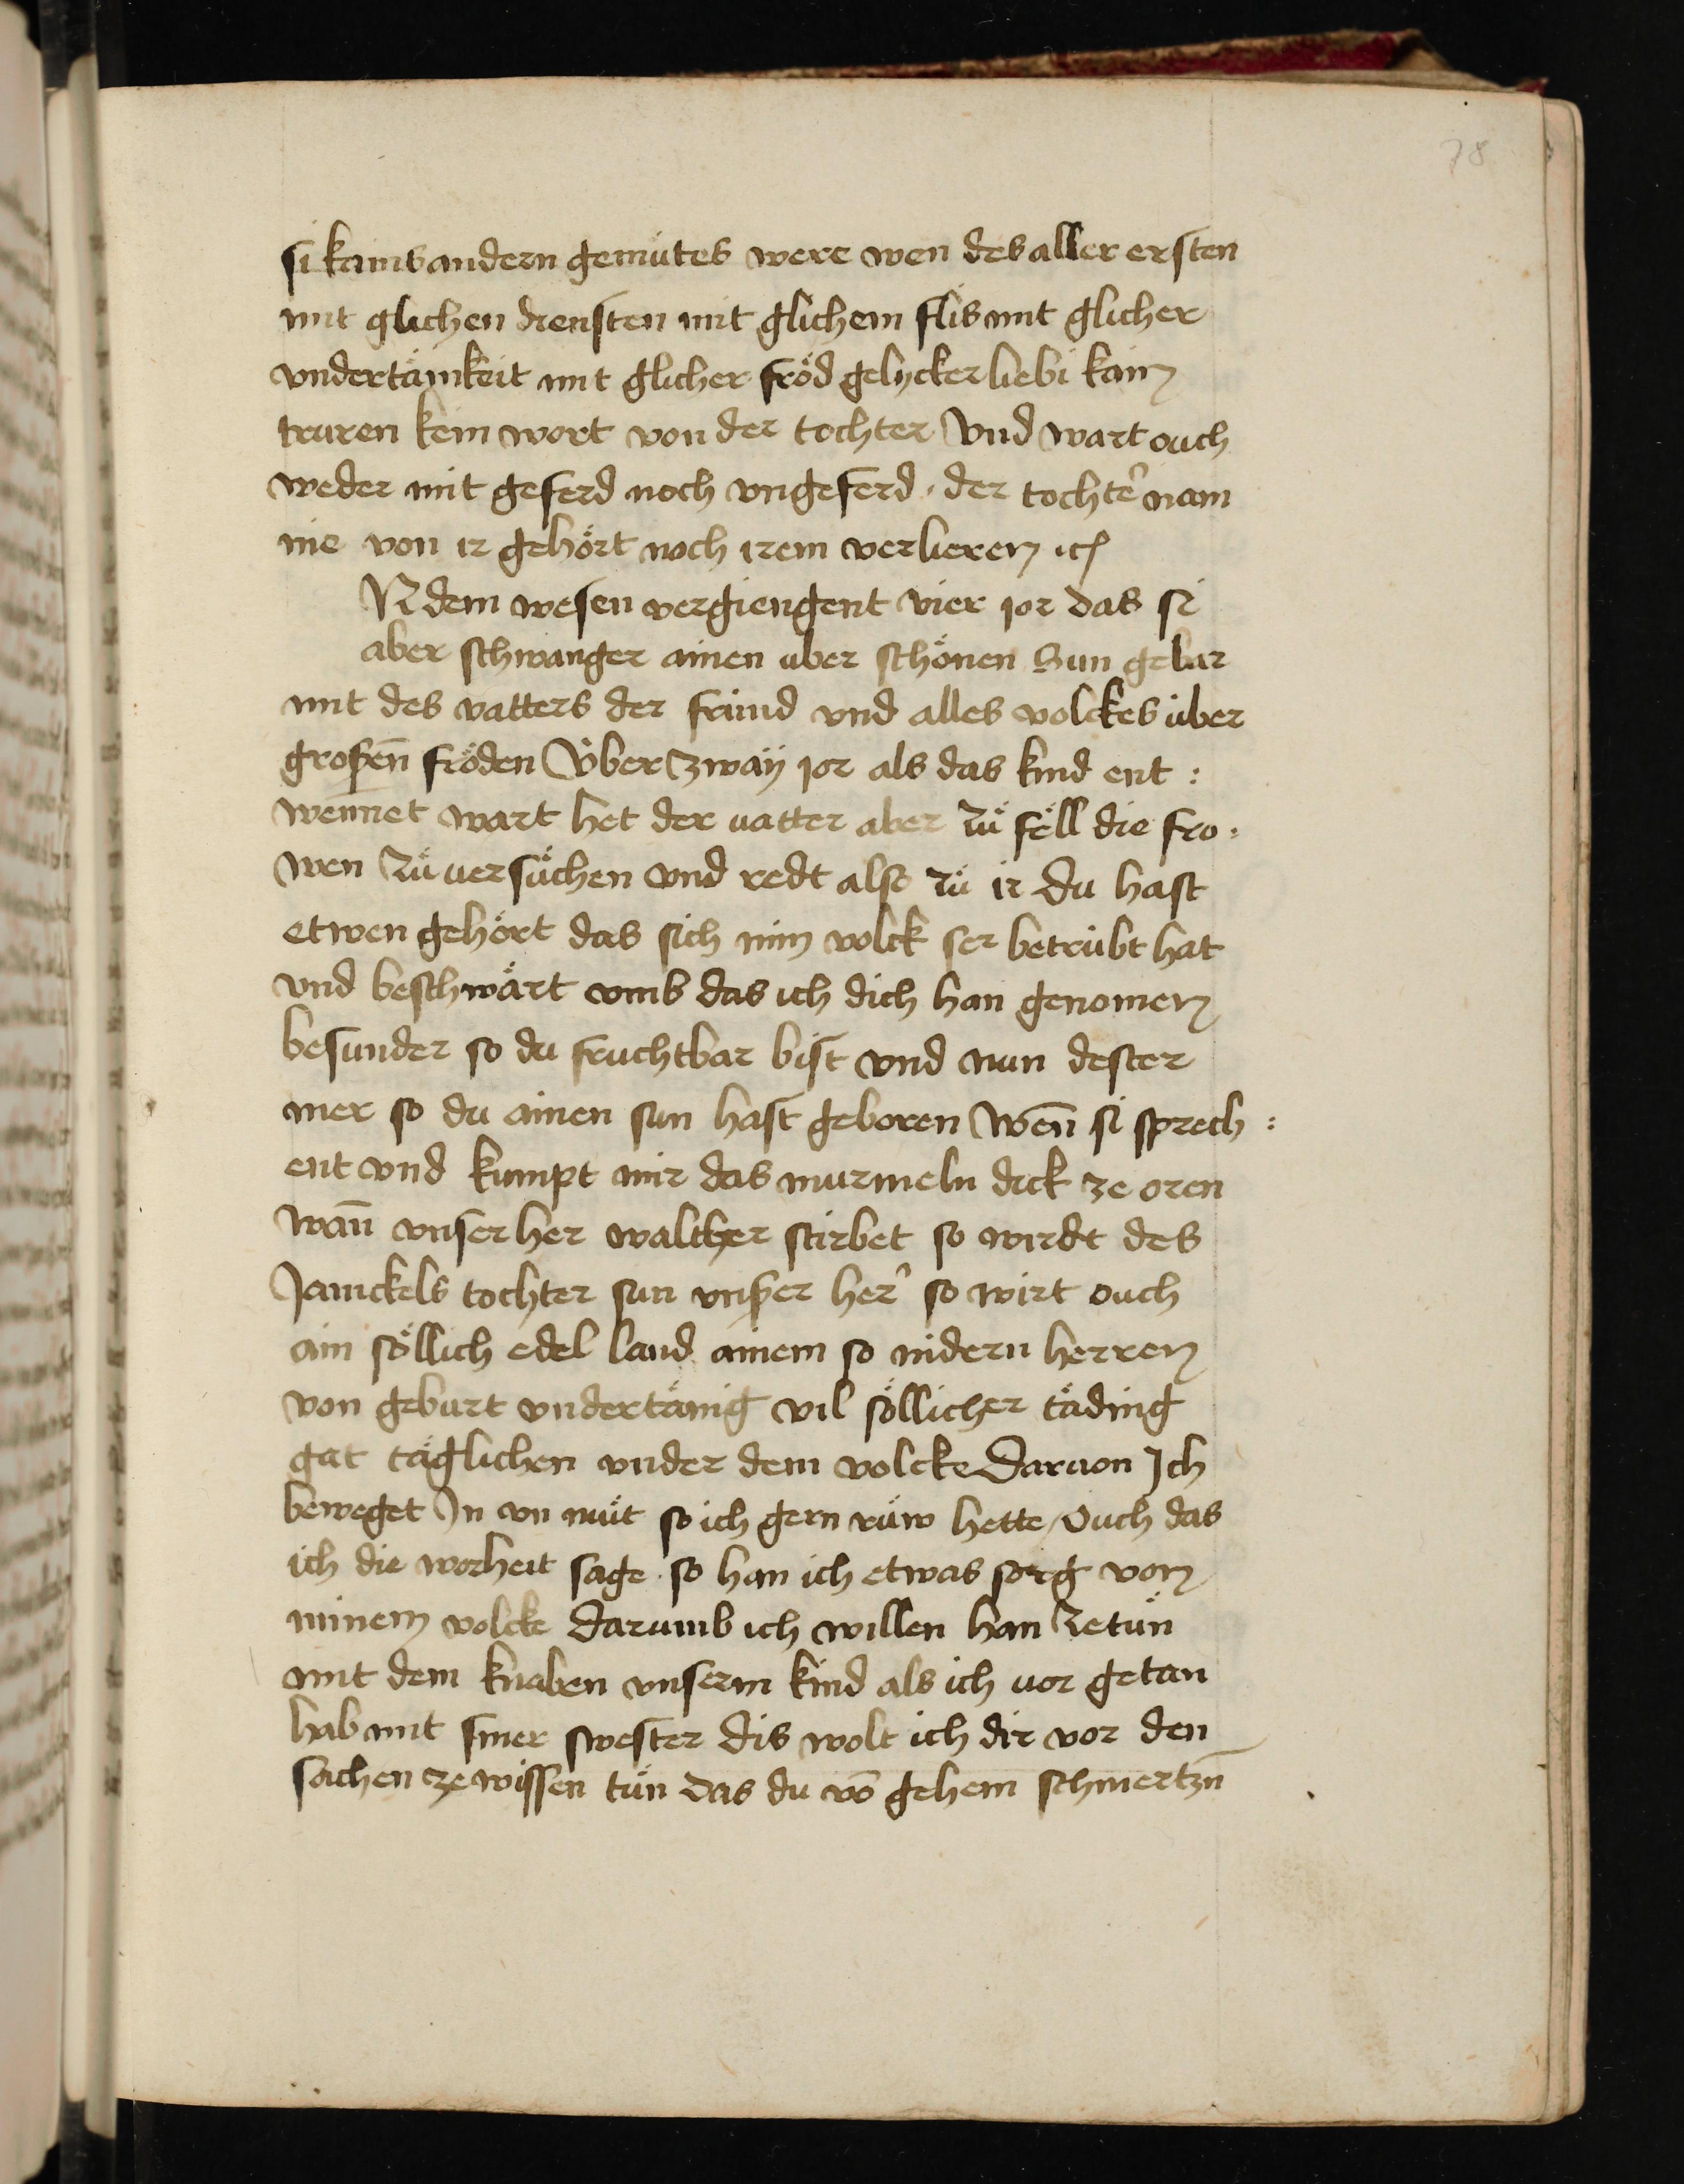 78
si kains andern gemütes were wen des aller ersten
mit glichen diensten mit glichem flis mit glicher
vndertänikeit mit glicher fröd gelycker liebi kain
truren kein wort von der tochter Vnd wart ouch
weder mit geferd noch vngeferd · der tochte᷑ nam
nie von ir gehört noch irem verlieren ich
N dem wesen vergiengent vier jor das si
aber schwanger ainen über schönen Sun gebar
mit des vatters der fründ vnd alles volckes über
großen̄ fröden Über zwaÿ jor als das kind ent :
wennet wart het der uatter aber zů fëll die fro :
wen zů uersůchen vnd redt also zů ir du hast
etwen gehört das sich min volck ser betrübt hat
vnd beschwärt vmb das ich dich han genomen
besunder so du fruchtbar bist vnd nun dester
mer so du ainen sun hast geboren Wen̄ si sprech :
ent vnd kumpt mir das murmeln dick ze oren
wan̄ vnser her walther stirbet so wirdt des
Janickels tochter sun vnßer her᷑ so wirt ouch
ain söllich edel land ainem so nidern herren
von geburt vndertänig vil söllicher täding
gat täglichen vnder dem volcke Daruon Ich
beweget In vn můt so ich gern růw hette / Ouch das
ich die worheit sage · so han ich etwas sorg von
minem volcke darumb ich willen han zetůn
mit dem knaben vnserm kind als ich vor getan
hab mit siner swester dis wolt ich dir vor den
sachen ze wissen tůn das du vō gehem schmertzn̄